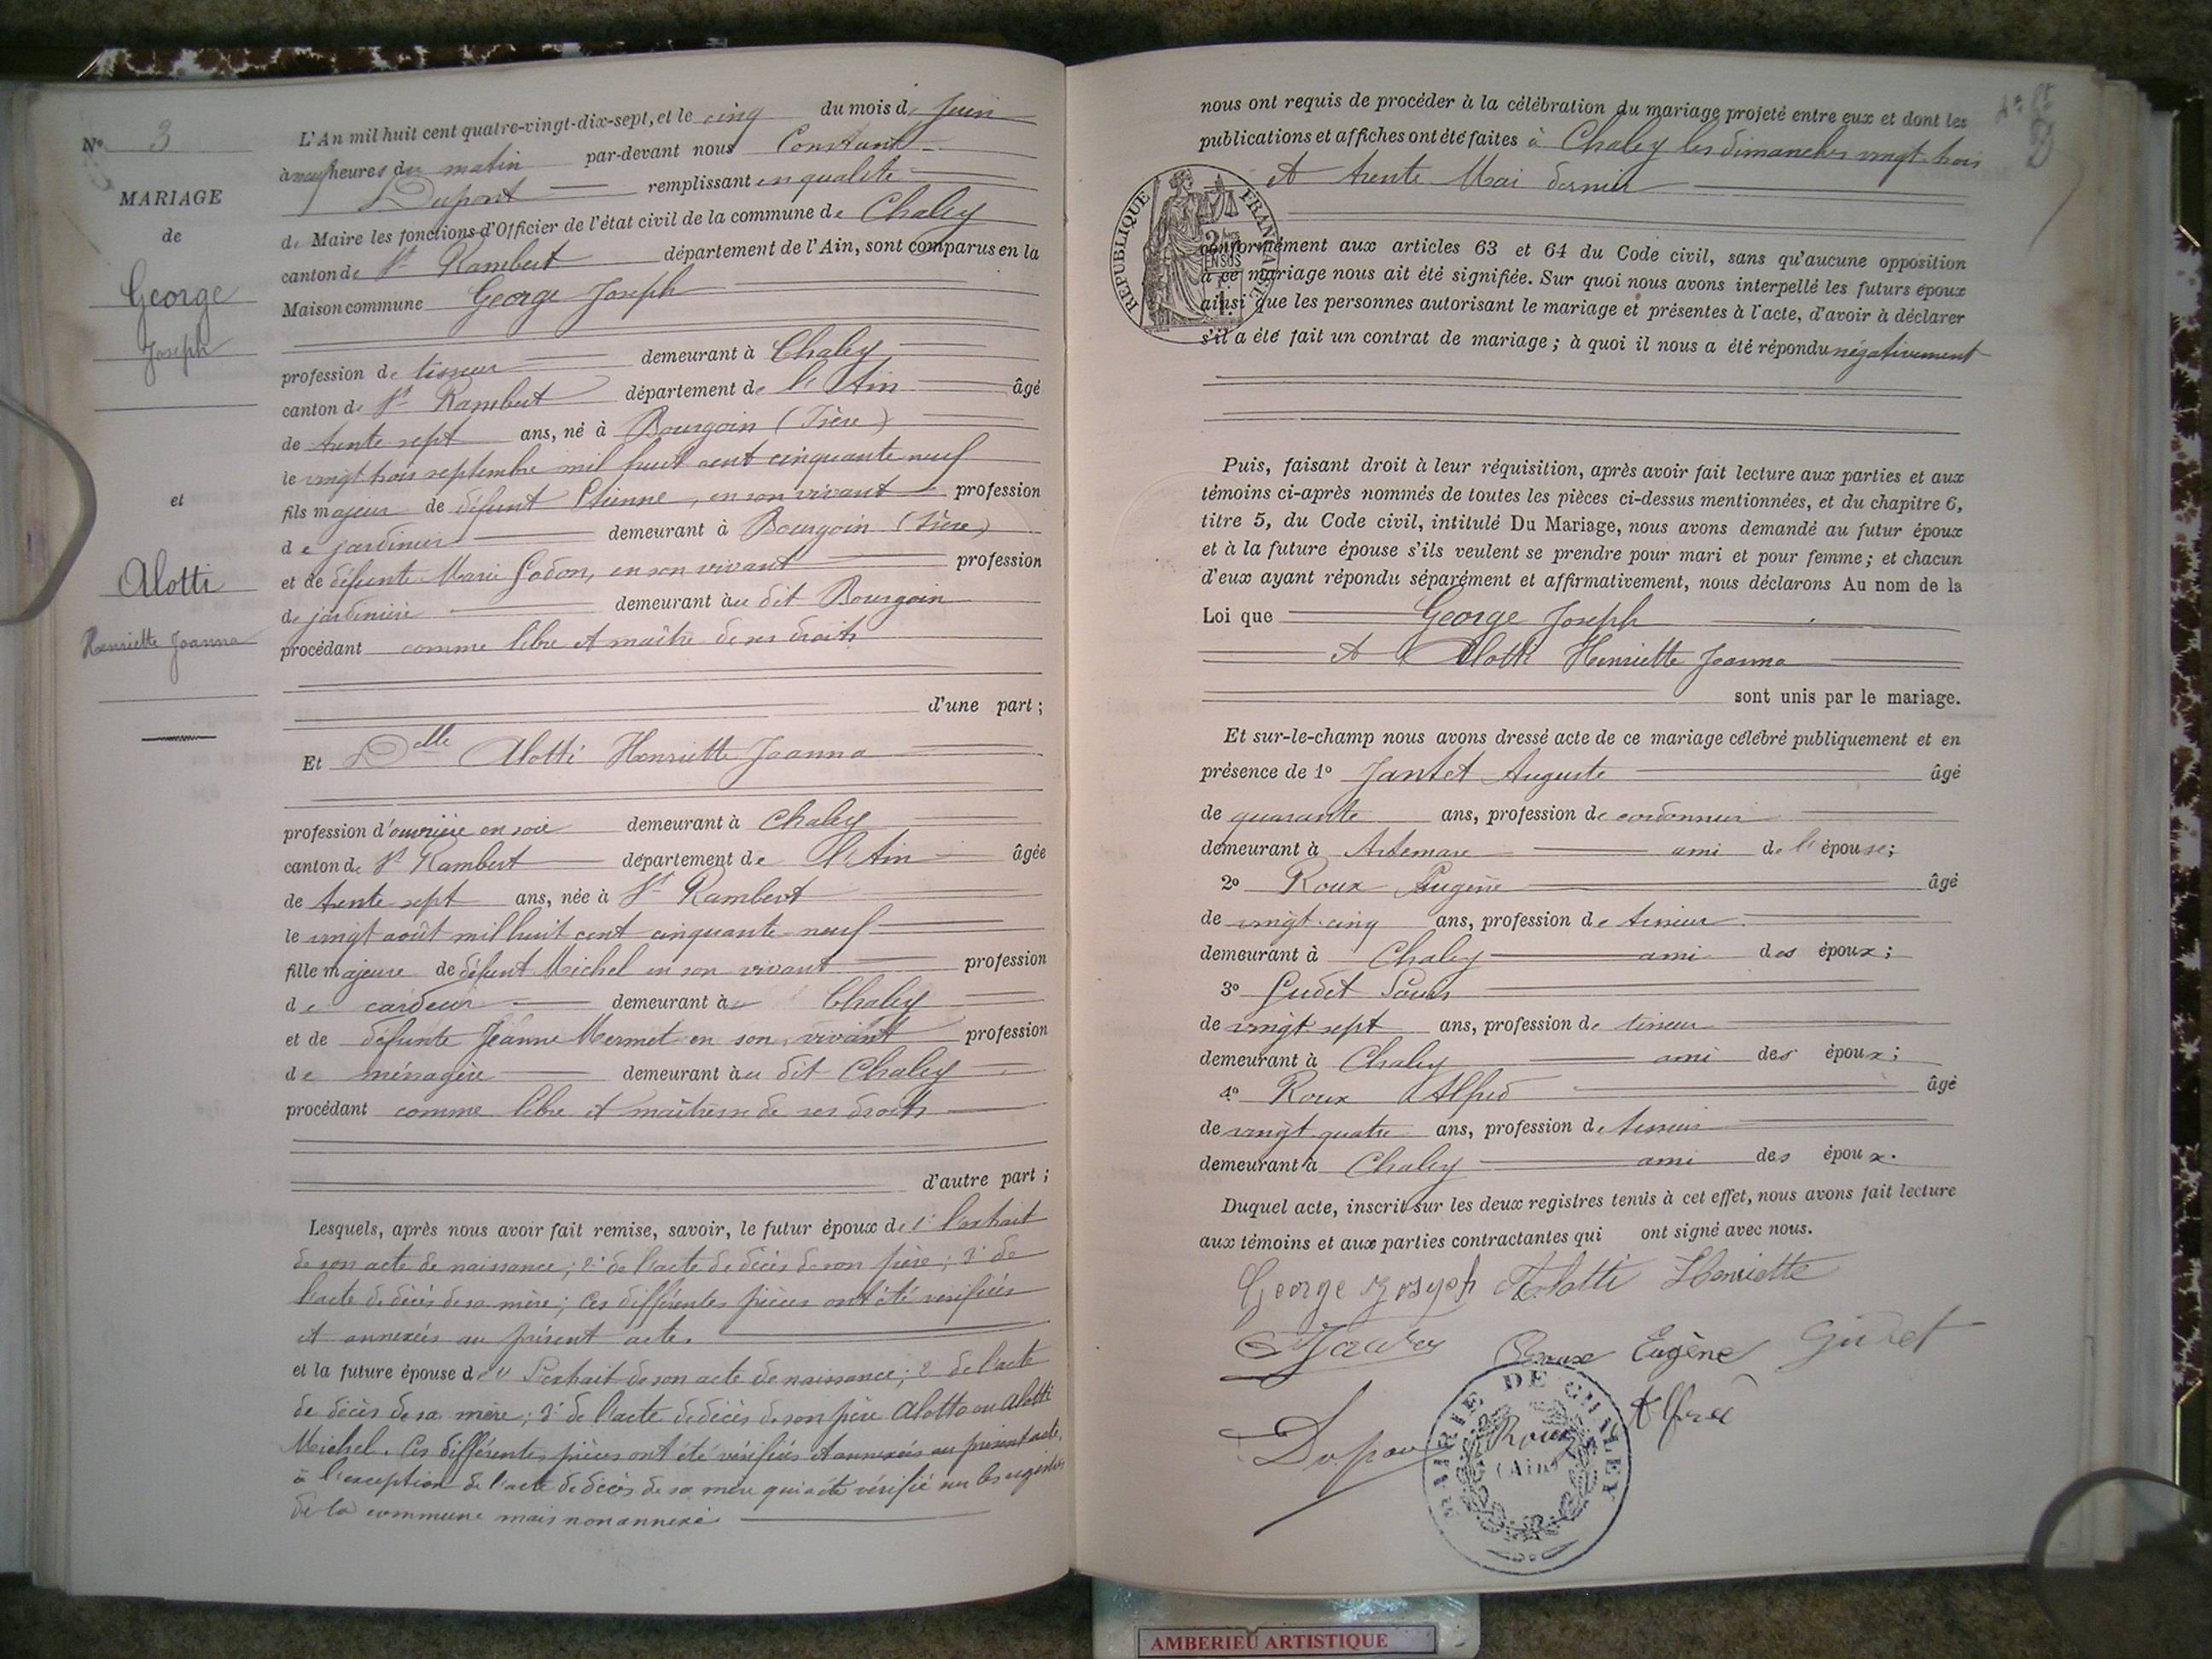 N° 3
MARIAGE
de
George
Joseph
et
Alotti
Henriette Joanna
L'An mil huit cent quatre-vingt-dix-sept, et le cinq du mois de Juin
à neuf heures du matin par-devant nous Constant
Dupont remplissant en qualité
de Maire les fonctions d'Officier de l'état civil de la commune de Chaley
canton de St Rambert département de l'Ain, sont comparus en la
Maison commune George Joseph
profession de tisseur demeurant à Chaley
canton de St Rambert département de l'Ain âgé
de trente sept ans, né à Bourgoin (Isère)
le vingt trois septembre mil huit cent cinquante neuf
fils majeur de défunt Etienne, en son vivant profession
de jardinier demeurant à Bourgoin (Isère)
et de défunte Marie Godon, en son vivant profession
de jardinière demeurant au dit Bourgoin
procédant comme libre et maître de ses droits
d'une part ;
Et Delle Alotti Henriette Joanna
profession d'ouvrière en soie demeurant à Chaley
canton de St Rambert département de l'Ain âgée
de trente sept ans, née à St Rambert
le vingt août mil huit cent cinquante neuf
fille majeure de défunt Michel en son vivant profession
de cardeur demeurant à Chaley
et de défunte Jeanne Mermet en son vivant profession
de ménagère demeurant au dit Chaley
procédant comme libre et maîtresse de ses droits
d'autre part ;
Lesquels, après nous avoir fait remise, savoir, le futur époux de 1° l'extrait
de son acte de naissance ; 2° de l'acte de décès de son père ; 3° de
l'acte de décès de sa mère ; Ces différentes pièces ont été vérifiées
et annexées au présent acte.
et la future épouse de 1° l'extrait de son acte de naissance ; 2° de l'acte
de décès de sa mère ; 3° de l'acte de décès de son père Alotto ou Alotti
Michel. Ces différentes pièces ont été vérifiées et annexées au présent acte,
à l'exception de l'acte de décès de sa mère qui a été vérifié sur les registres
de la commune mais non annexé
nous ont requis de procéder à la célébration du mariage projeté entre eux et dont les
publications et affiches ont été faites à Chaley les dimanches vingt-trois
et trente Mai dernier
REPUBLIQUE FRANÇAISE
conformément aux articles 63 et 64 du Code civil, sans qu'aucune opposition
à ce mariage nous ait été signifiée. Sur quoi nous avons interpellé les futurs époux
ainsi que les personnes autorisant le mariage et présentes à l'acte, d'avoir à déclarer
s'il a été fait un contrat de mariage ; à quoi il nous a été répondu négativement
Puis, faisant droit à leur réquisition, après avoir fait lecture aux parties et aux
témoins ci-après nommés de toutes les pièces ci-dessus mentionnées, et du chapitre 6,
titre 5, du Code civil, intitulé Du Mariage, nous avons demandé au futur époux
et à la future épouse s'ils veulent se prendre pour mari et pour femme ; et chacun
d'eux ayant répondu séparément et affirmativement, nous déclarons Au nom de la
Loi que George Joseph
et Alotti Henriette Joanna
sont unis par le mariage.
Et sur-le-champ nous avons dressé acte de ce mariage célébré publiquement et en
présence de 1° Jantet Auguste âgé
de quarante ans, profession de cordonnier
demeurant à Artemare ami de l'épouse ;
2° Roux Eugène âgé
de vingt-cinq ans, profession de tisseur
demeurant à Chaley ami des époux ;
3° Gudet Louis
de vingt sept ans, profession de tisseur
demeurant à Chaley ami des époux ;
4° Roux Alfred âgé
de vingt-quatre ans, profession de tisseur
demeurant à Chaley ami des époux.
Duquel acte, inscrit sur les deux registres tenus à cet effet, nous avons fait lecture
aux témoins et aux parties contractantes qui ont signé avec nous.
George Joseph Alotti Henriette
Roux Eugène Gudet
Dupont Roux Alfred
MAIRIE DE CHALEY
(Ain)
AMBERIEU ARTISTIQUE